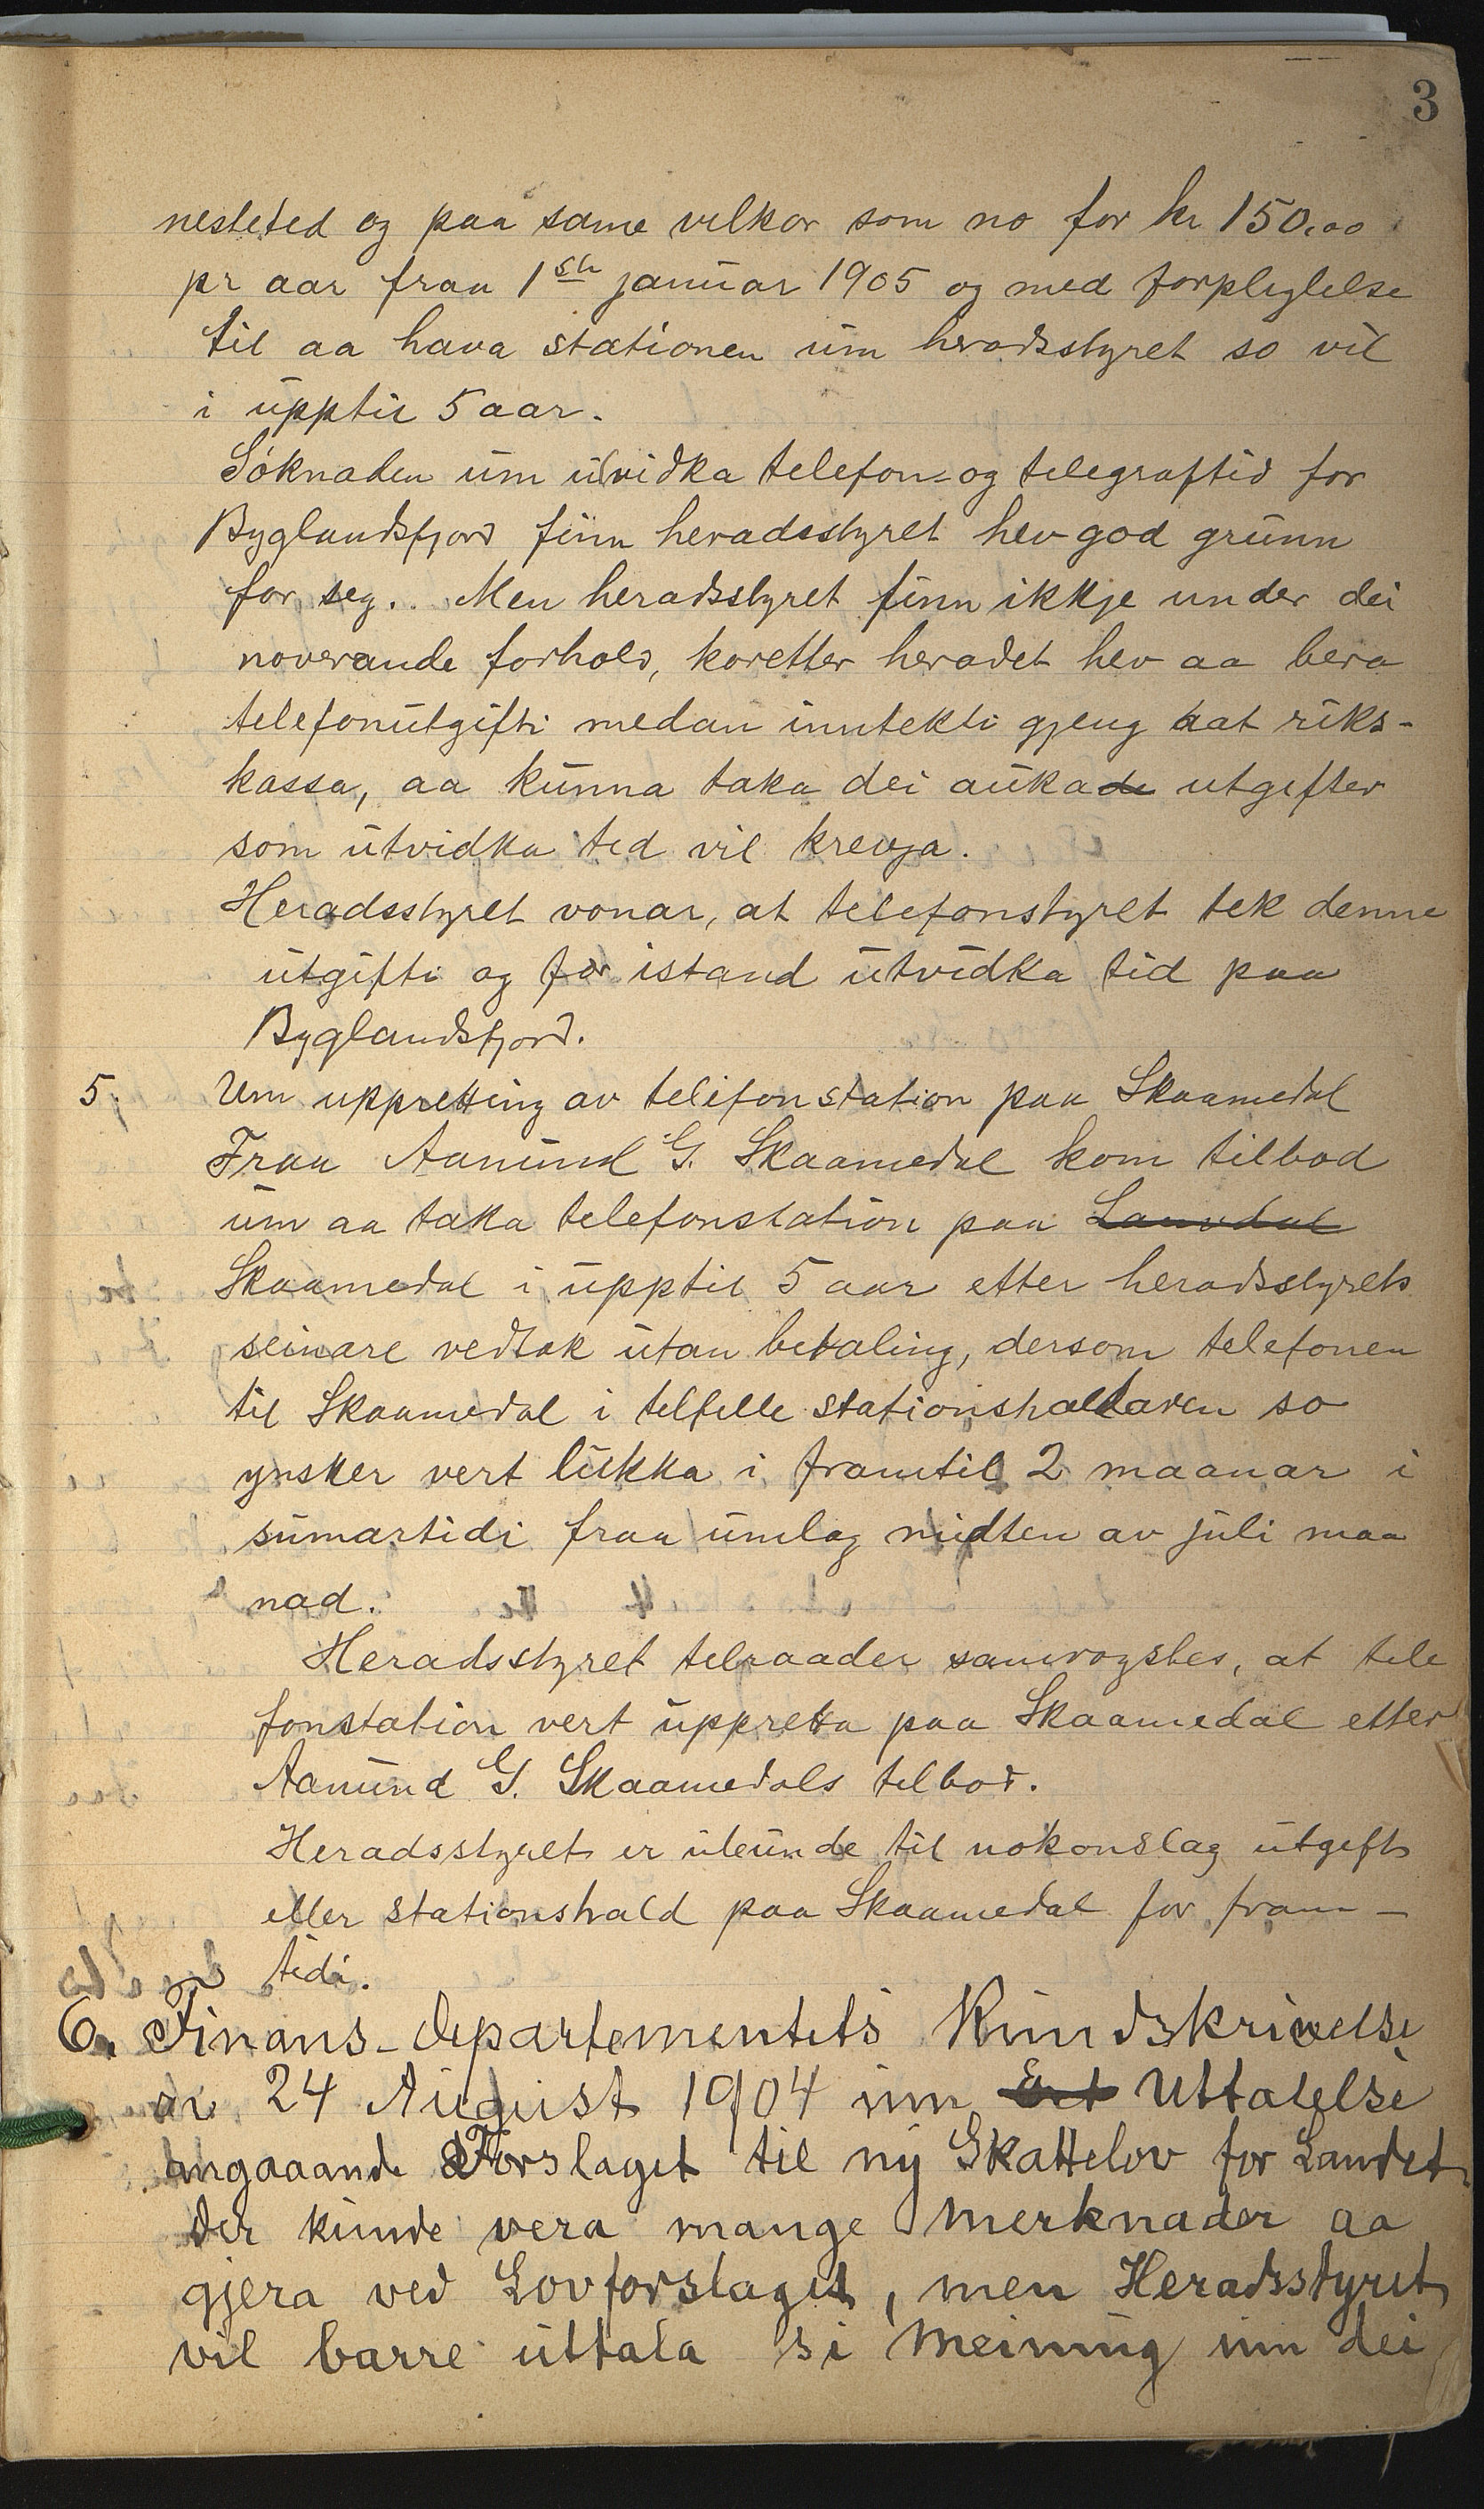 3
nesteted og paa same vilkor som no for kr 150,00
pr aar fraa 1ste januar 1905 og med forpligtelse
til aa hava stationen um heradsstyret so vil
i upptil 5 aar.
Söknaden um utvidka telefon- og telegraftid for
Byglandsfjord finn heradsstyret hev god grunn
for seg. Men heradsstyret finn ikkje under dei
noverande forhold, koretter heradet hev aa bera
telefonutgifti medan inntekti gjeng aat riks-
kassa, aa kunna taka dei aukade utgifter
som utvidka tid vil krevja.
Heradsstyret vonar, at telefonstyret tek denne
utgifti og fær istand utvidka tid paa
Byglandsfjord.
5. Um uppretting av telefonstation paa Skaamedal
Fraa Aanund G. Skaamedal kom tilbod
um aa taka telefonstation paa Lauvdal
Skaamedal i upptil 5 aar etter heradsstyrets
seinare vedtak utan betaling, dersom telefonen
til Skaamedal i tilfelle stationshaldaren so
ynsker vert lukka i framtil 2 maanar i
sumartidi fraa umlag midten av juli maa
nad.
Heradsstyret telraader samrøystes, at tele
fonstation vert uppretta paa Skaamedal etter
Aanund G. Skaamedals tilbod.
Heradsstyret er uleunde til nokonslag utgift
eller stationshald paa Skaamedal for fram-
tidi.
6. Finans-departementets Rundskrivelse
av 24 August 1904 um Ert Uttalelse
angaaande Forslaget til ny Skattelov for Landet.
Der kunde vera mange Merknader aa
gjera ved Lovforslaget, men Heradsstyret
vil barre uttala si Meining um dei